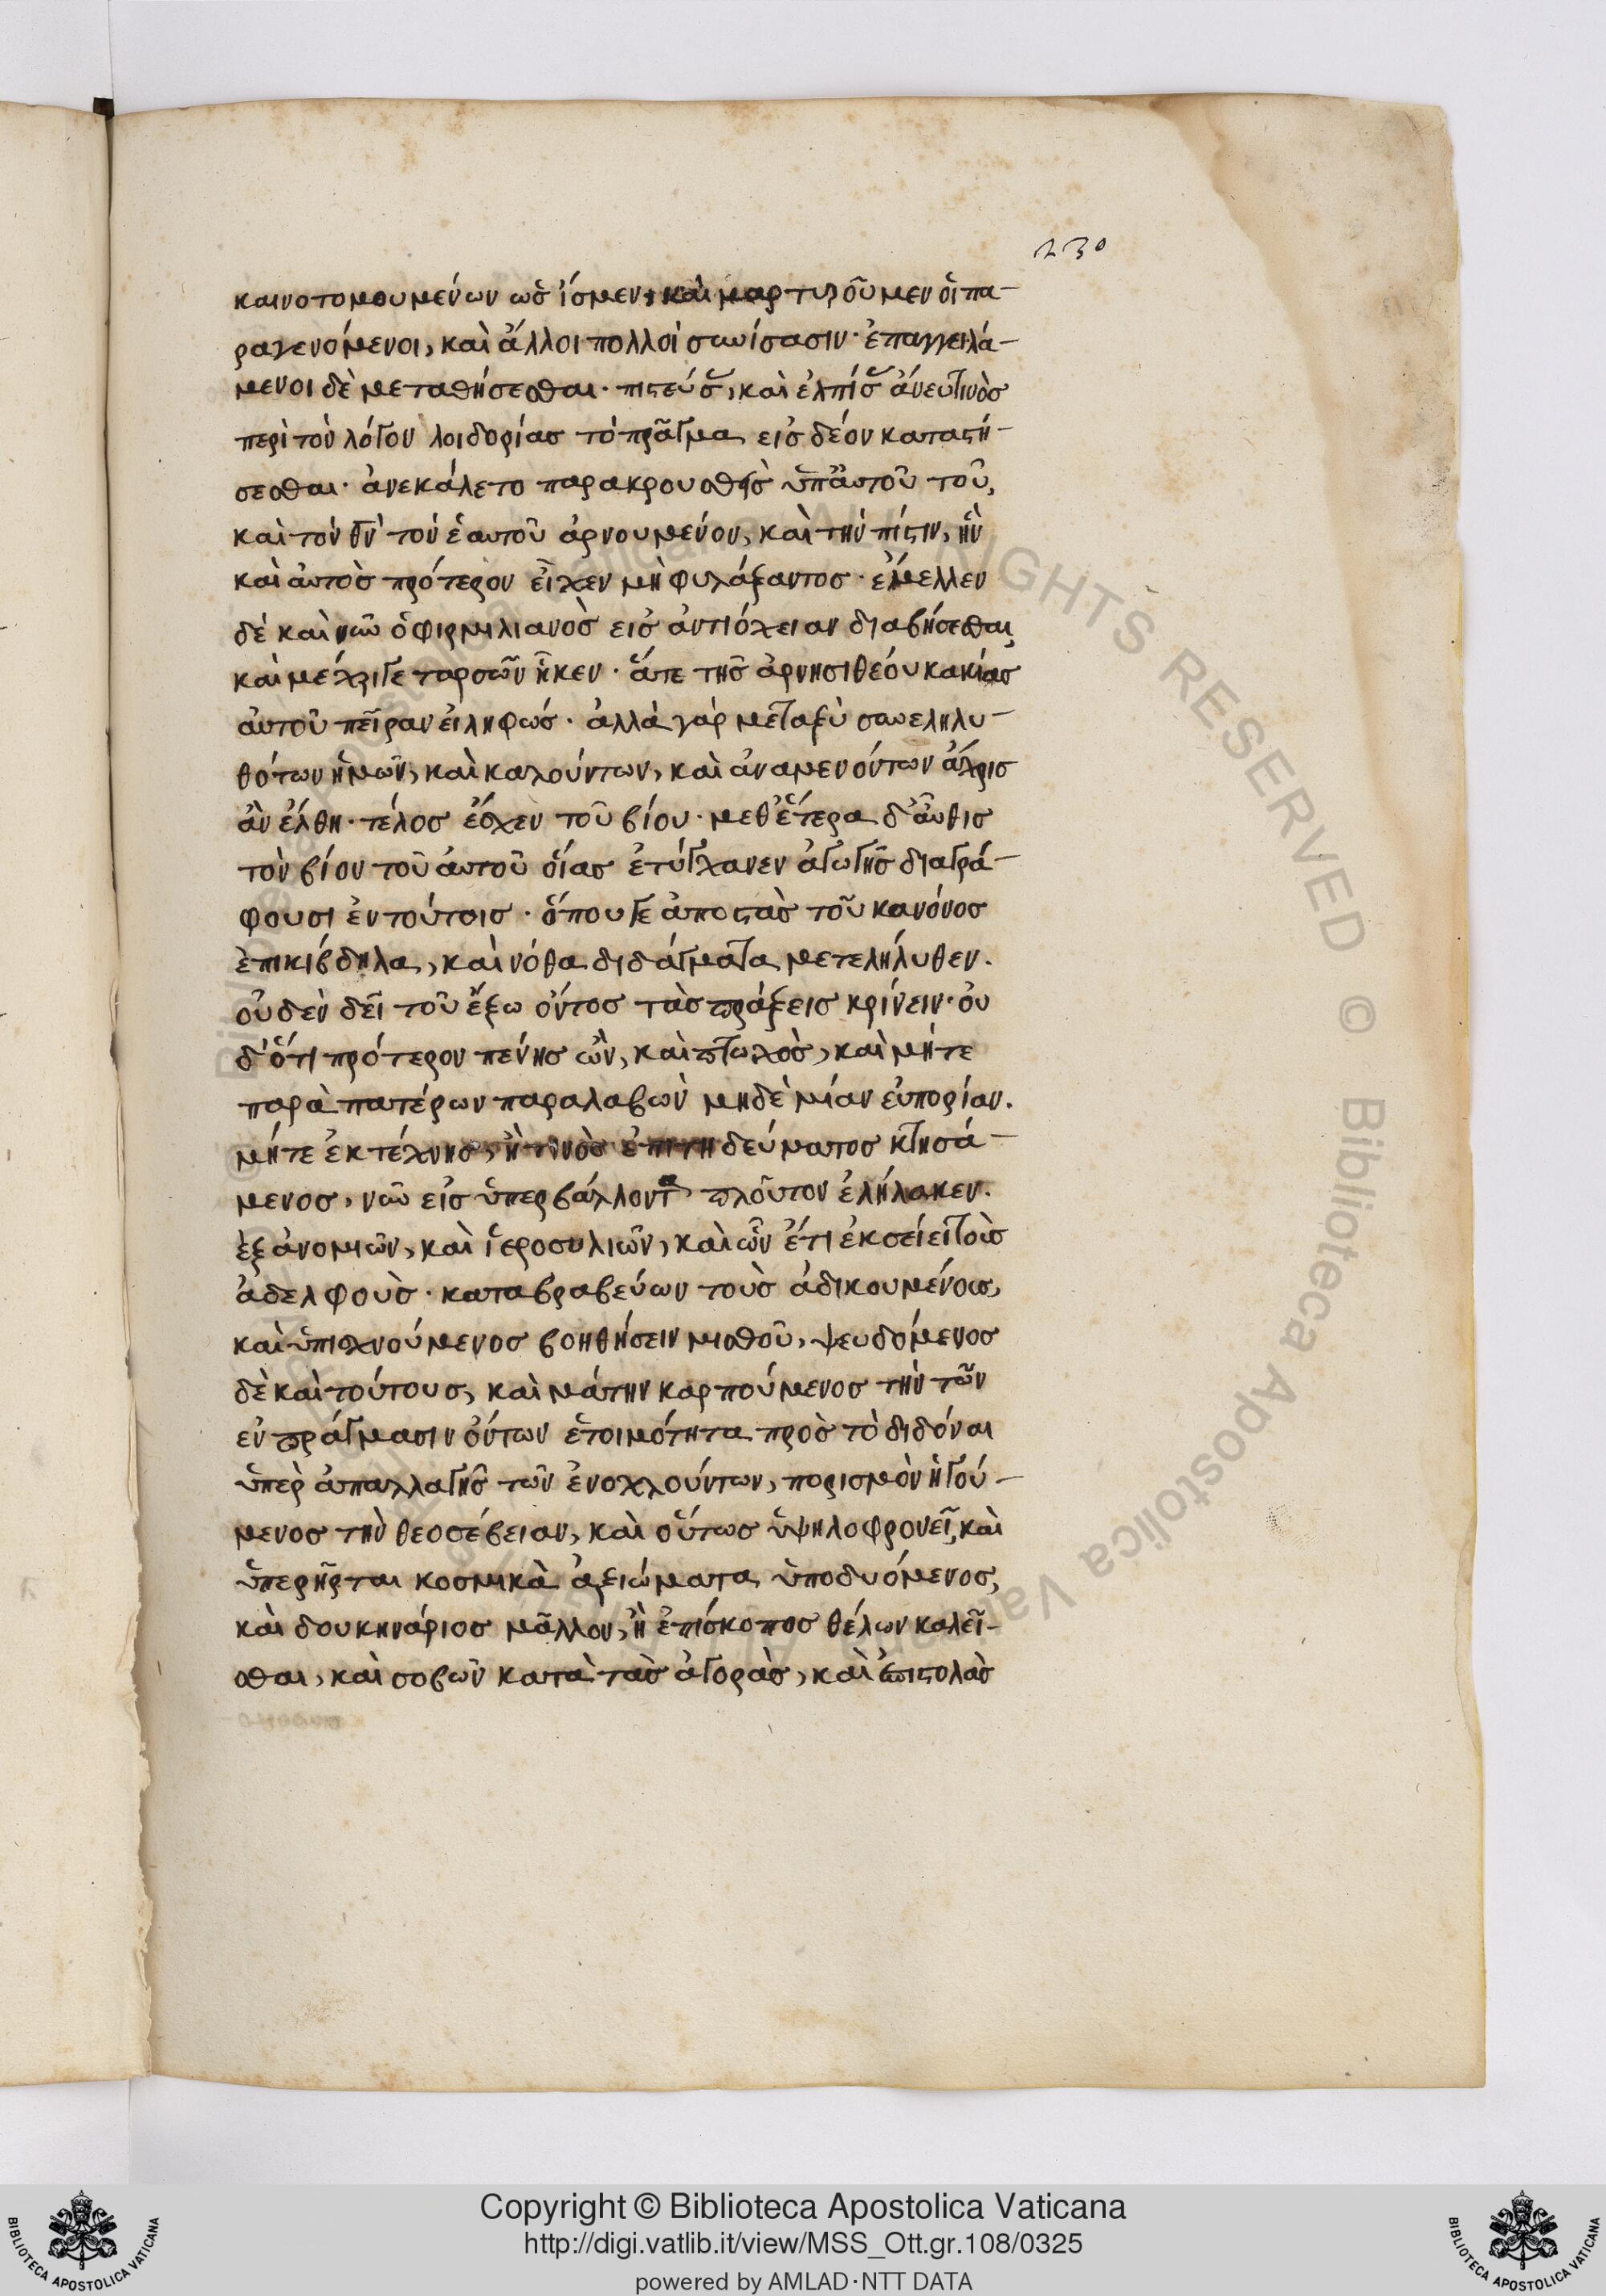 230
καινοτομουμένων ὡς ἴσμεν, καὶ μαρτυροῦμεν οἱ πα-
ραγενόμενοι, καὶ ἄλλοι πολλοὶ συνίσασιν· ἐπαγγειλά-
μενοι δὲ μεταθήσεσθαι· πιστεύσ, καὶ ἐλπίσ ἄνευτινὸς
περὶ τὸν λόγον λοιδορίας τὸ πρᾶγμα εἰς δέον καταστή-
σεσθαι· ἀνεκάλετο παρακρουσθεὶς ὑπ' αὐτοῦ τοῦ,
καὶ τὸν θν τὸν ἑαυτοῦ ἀρνουμένου, καὶ τὴν πίστιν, ἣν
καὶ αὐτὸς πρότερον εἶχεν μὴ φυλάξαντος· ἔμελλεν
δὲ καὶ νῦν ὁ φιρμιλιανὸς εἰς ἀντιόχειαν διαβήσεσθαι
καὶ μέχριγε ταρσῶν ἧκεν· ἅτε τῆς ἀρνησιθέου κακίας
αὐτοῦ πεῖραν εἰληφώς· ἀλλὰ γάρ μεταξὺ συνεληλυ-
θότων ἡμῶν, καὶ καλούντων, καὶ ἀναμενόντων ἄχρις
ἂν ἔλθη· τέλος ἔσχεν τοῦ βίου· μεθ' ἕτερα δ' αὖθις
τὸν βίον τοῦ αὐτοῦ οἵας ἐτύγχανεν ἀγωγῆς διαγρά-
φουσι ἐν τούτοις· ὅπουγε ἀποστὰς τοῦ κανόνος
ἐπικίβδηλα, καὶ νόθα διδάγματα μετελήλυθεν.
οὐδὲν δεῖ τοῦ ἔξω ὄντος τὰς πράξεις κρίνειν· οὐ
δ' ὅτι πρότερον πένης ὢν, καὶ πτωχὸς, καὶ μήτε
παρὰ πατέρων παραλαβὼν μηδὲ μίαν εὐπορίαν.
μήτε ἐκ τέχνης, ἤ τινὸς ἐπιτηδεύματος κτησά-
μενος, νῦν εἰς ὑπερβάλλοντα πλοῦτον ἐλήλακεν.
ἐξ ἀνομιῶν, καὶ ἱεροσυλιῶν, καὶ ὧν ἔτι ἐκσείει τοὺς
ἀδελφοὺς· καταβραβεύων τοὺς ἀδικουμένους,
καὶ ὑπισχνούμενος βοηθήσειν μισθοῦ, ψευδόμενος
δὲ καὶ τούτους, καὶ μάτην καρπούμενος τὴν τῶν
ἐν πράγμασιν ὄντων ἑτοιμότητα πρὸς τὸ διδόναι
ὑπὲρ ἀπαλλαγῆς τῶν ἐνοχλούντων, πορισμὸν ἡγού-
μενος τὴν θεοσέβειαν, καὶ οὕτως ὑψηλοφρονεῖ, καὶ
ὑπερῆρται κοσμικὰ ἀξιώματα ὑποδυόμενος,
καὶ δουκηνάριος μᾶλλον, ἢ ἐπίσκοπος θέλων καλεῖ-
σθαι, καὶ σοβῶν κατὰ τὰς ἀγορὰς, καὶ ἐπιστολὰς
Copyright © Biblioteca Apostolica Vaticana
http://digi.vatlib.it/view/MSS_Ott.gr.108/0325
powered by AMLAD·NTT DATA